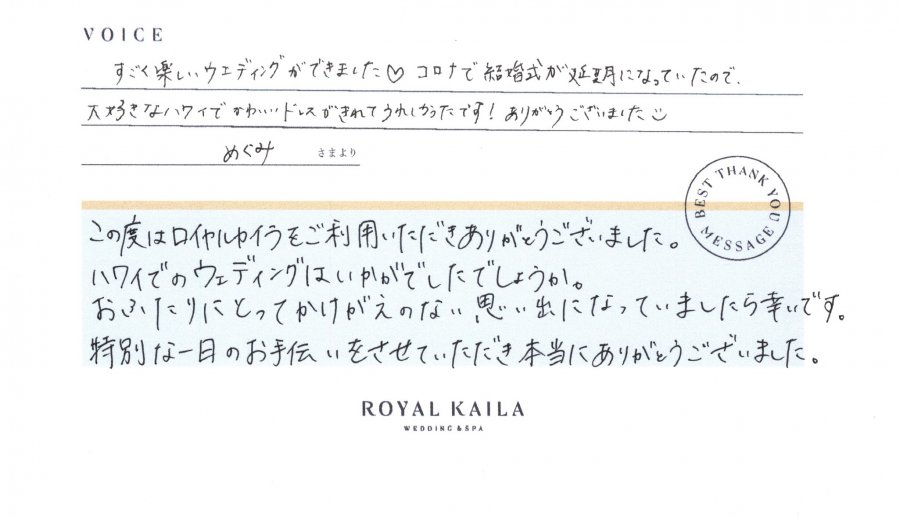 VOICE
すごく楽しいウエディングができました♡ コロナで結婚式が延期になっていたので、
大好きなハワイでかわいいドレスがきれてうれしかったです！ありがとうございました☺
めぐみ さまより
BEST THANK YOU MESSAGE
この度はロイヤルカイラをご利用いただきありがとうございました。
ハワイでのウェディングはいかがでしたでしょうか。
おふたりにとってかけがえのない思い出になっていましたら幸いです。
特別な一日のお手伝いをさせていただき本当にありがとうございました。
ROYAL KAILA
WEDDING & SPA